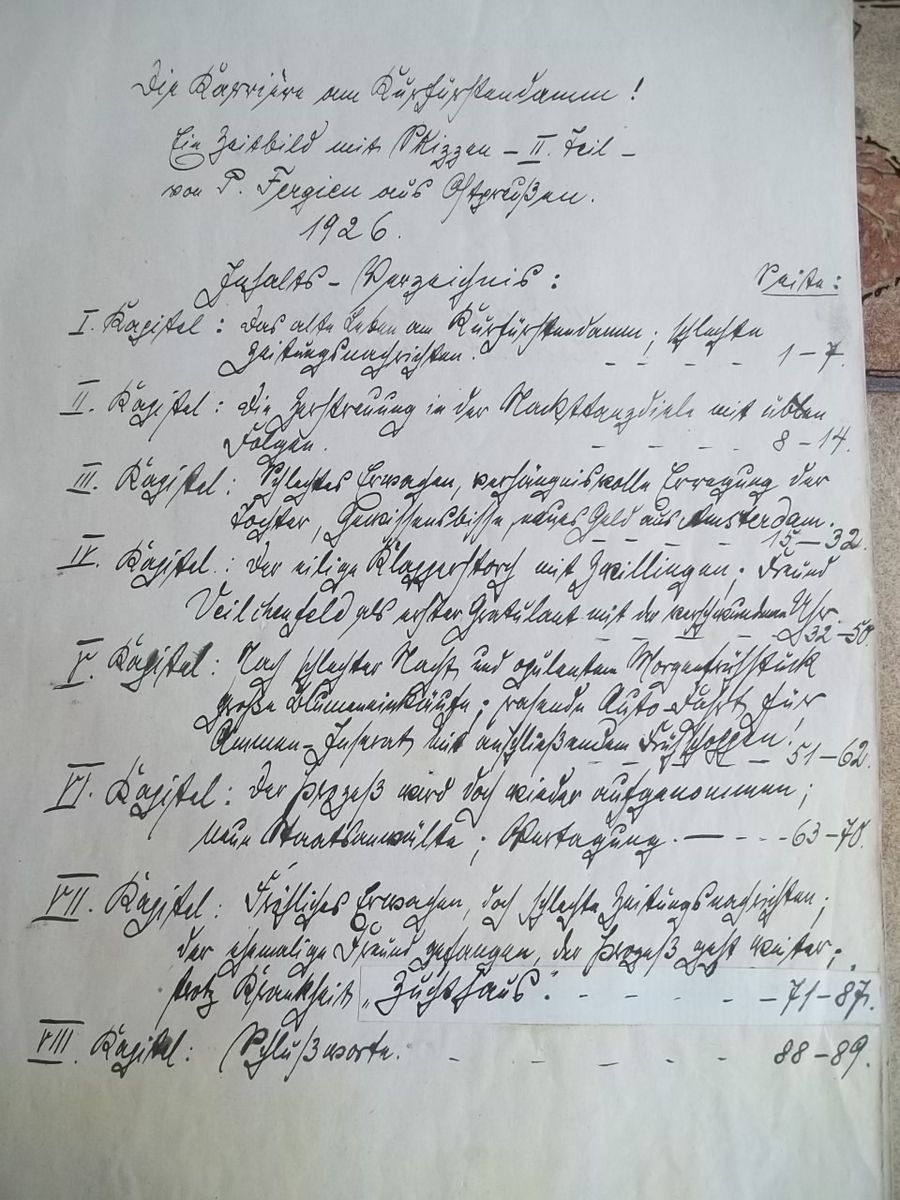 Die Karriere am Kurfürstendamm!
Ein Zeitbild mit Skizzen – II. Teil –
von P. Fergien aus Ostpreußen.
1926.
Inhalts-Verzeichnis: Seite:
I. Kapitel: Das alte Leben am Kurfürstendamm; schlechte
Zeitungsnachrichten. – – – – 1–7.
II. Kapitel: Die Zerstreuung in der Nackttanzdiele mit üblen
Folgen. – – – – 8–14.
III. Kapitel: Schlechtes Erwachen, verhängnisvolle Erregung der
Tochter, Gewissensbisse, neues Geld aus Amsterdam.
– – – – 15–32.
IV. Kapitel: Der eilige Klapperstorch mit Zwillingen; Freund
Veilchenfeld als erster Gratulant mit der verschwundenen Uhr.
– – – – 32–50.
V. Kapitel: Nach schlechter Nacht und opulentem Morgenfrühstück
große Blumeneinkäufe; rasende Auto-Fahrt für
Ammen-Inserat mit anschließendem Frühschoppen!
– – – – 51–62.
VI. Kapitel: Der Prozeß wird doch wieder aufgenommen;
neue Staatsanwälte; Vertagung. – – – – 63–70.
VII. Kapitel: Fröhliches Erwachen, doch schlechte Zeitungsnachrichten;
der ehemalige Freund gefangen, der Prozeß geht weiter;
trotz Krankheit „Zuchthaus“. – – – – – 71–87.
VIII. Kapitel: Schlußworte. – – – – – – 88–89.